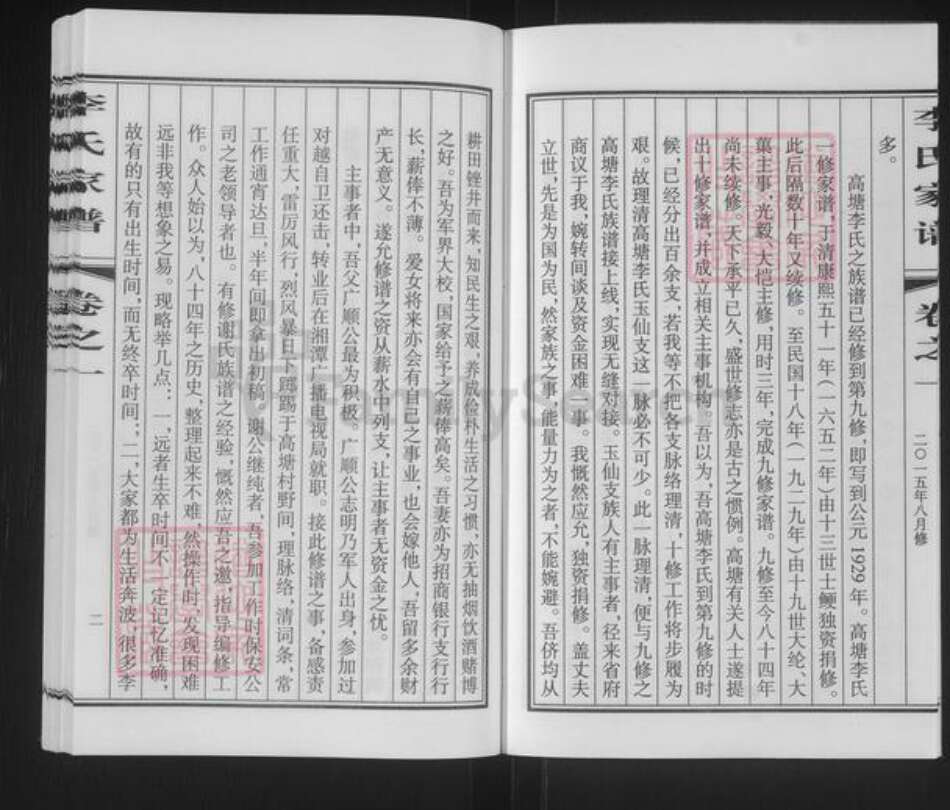 李氏家谱 卷之一 二〇一五年八月修
多。
高塘李氏之族谱已经修到第九修，即写到公元1929年。高塘李氏
一修家谱，于清康熙五十一年（一六五二年）由十三世士鲠独资捐修。
此后隔数十年又续修。至民国十八年（一九二九年）由十九世大纶、大
蕖主事，光毅、大恺主修，用时三年，完成九修家谱。九修至今八十四年
尚未续修。天下承平已久，盛世修志亦是古之惯例。高塘有关人士遂提
出十修家谱，并成立相关主事机构。吾以为，吾高塘李氏到第九修的时
候，已经分出百余支，若我等不把各支脉络理清，十修工作将步履为
艰。故理清高塘李氏玉仙支这一脉必不可少。此一脉理清，便与九修之
高塘李氏族谱接上线，实现无缝对接。玉仙支族人有主事者，径来省府
商议于我，婉转间谈及资金困难一事。我慨然应允，独资捐修。盖丈夫
立世，先是为国为民，然家族之事，能量力为之者，不能婉避。吾侪均从
耕田锉井而来，知民生之艰，养成俭朴生活之习惯，亦无抽烟饮酒赌博
之好。吾为军界大校，国家给予之薪俸高矣。吾妻亦为招商银行支行行
长，薪俸不薄。爱女将来亦会有自己之事业，也会嫁他人，吾留多余财
产无意义。遂允修谱之资从薪水中列支，让主事者无资金之忧。
主事者中，吾父广顺公最为积极。广顺公志明乃军人出身，参加过
对越自卫还击，转业后在湘潭广播电视局就职。接此修谱之事，备感责
任重大，雷厉风行，烈风暴日下踯躅于高塘村野间，理脉络，清词条，常
工作通宵达旦，半年间即拿出初稿。谢公继纯者，吾参加工作时保安公
司之老领导者也。有修谢氏族谱之经验，慨然应吾之邀，指导编修工
作。众人始以为，八十四年之历史，整理起来不难，然操作时，发现困难
远非我等想象之易。现略举几点：一，远者生卒时间不一定记忆准确，
故有的只有出生时间，而无终卒时间；二，大家都为生活奔波，很多李
李氏家谱 卷之一
二